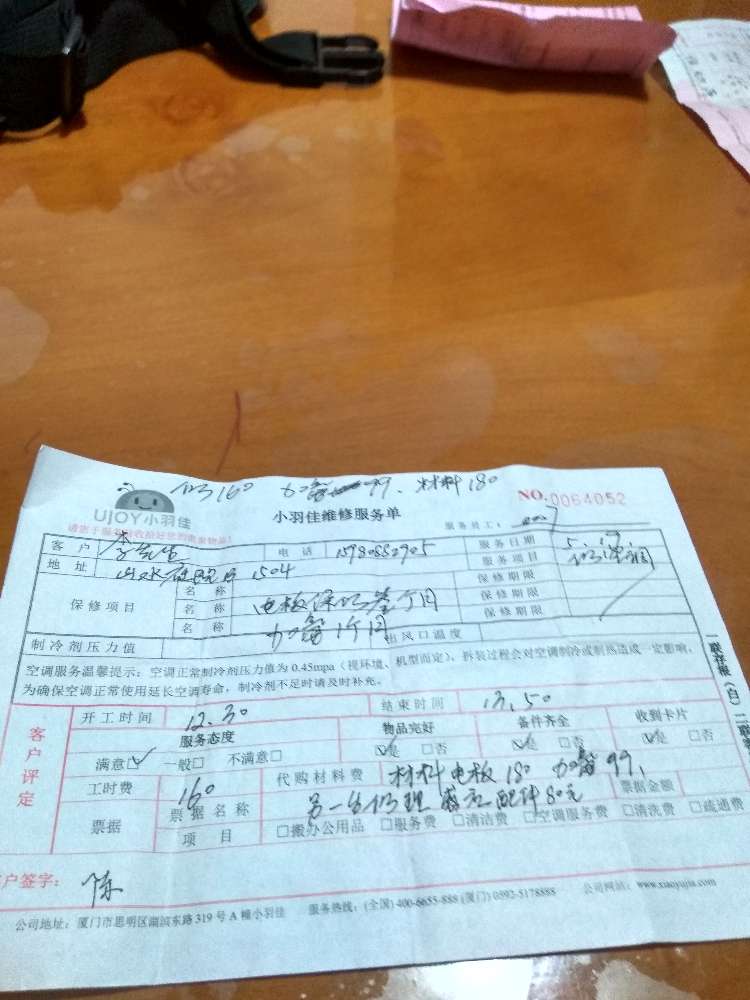 修160 加氟99. 材料180
UJOY小羽佳 小羽佳维修服务单 NO:0064052
服务员工:
客户 李先生 电话 15980882905 服务日期 5.19.
地址 1504 服务项目 修空调
保修项目 名称 保修期限
名称 电板保修叁个月 保修期限
名称 加氟1个月 保修期限
制冷剂压力值 出风口温度
空调服务温馨提示:空调正常制冷剂压力值为0.45mpa(视环境、机型而定),拆装过程会对空调制冷或制热造成一定影响,
为确保空调正常使用延长空调寿命,制冷剂不足时请及时补充。
客户评定 开工时间 12.30 结束时间 13.50
服务态度 物品完好 备件齐全 收到卡片
满意☑ 一般□ 不满意□ ☑是 □否 ☑是 □否 ☑是 □否
工时费 160 代购材料费 材料电板180 加氟99.
票据 票据名称 另一台修理 配件80元 票据金额
项目 □搬办公用品 □服务费 □清洁费 □空调服务费 □清洗费 □疏通费
客户签字: 陈
公司地址:厦门市思明区湖滨东路319号A幢小羽佳 服务热线:(全国)400-6655-888 (厦门)0592-5178888 公司网站:www.xiaoyujia.com
一联存根(白)